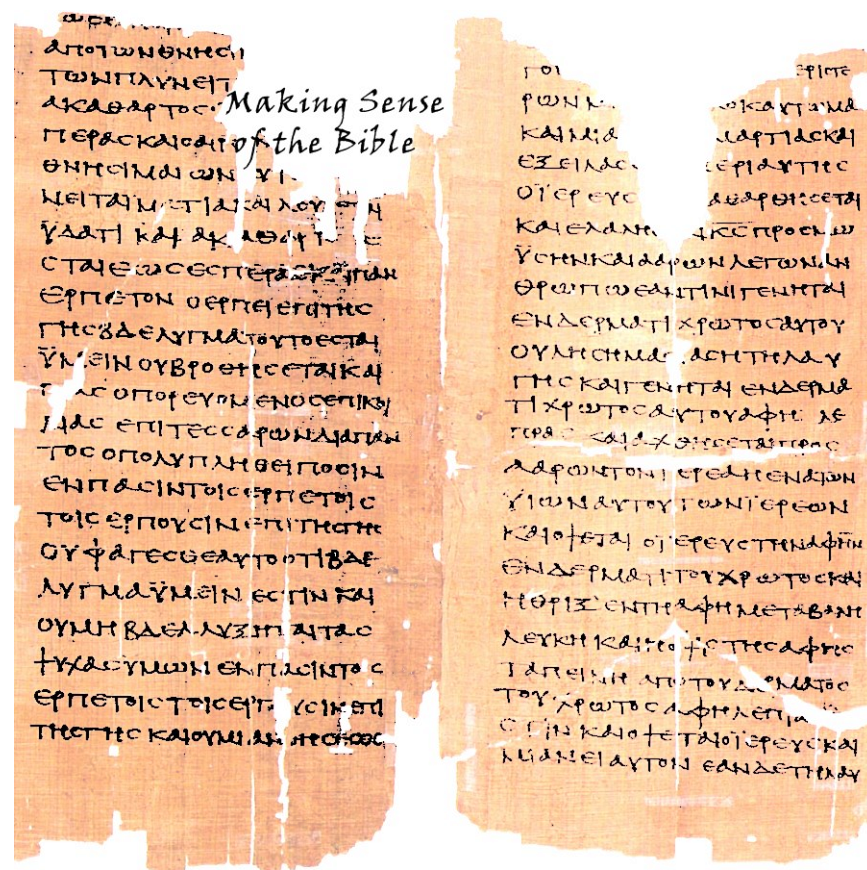 Making Sense
of the Bible
ΑΠΟΤΩΝΘΝΗCΙ
ΤΩΝΠΛΥΝΕΙΤ
ΑΚΑΘΑΡΤΟC
ΠΕΡΑCΚΑΙΟΑΙΡ
ΘΝΗCΙΜΑΙΩΝ
ΫΔΑΤΙ ΚΑΙ ΑΚΑΘΑΡΤ Ε
CΤΑΙΕΩCΕCΠΕΡΑCΚΑΙΠΑΝ
ΕΡΠΕΤΟΝ ΟΕΡΠΕΙΕΠΙΤΗC
ΓΗCΒΔΕΛΥΓΜΑΤΟΥΤΟΕCΤΑΙ
ΫΜΕΙΝ ΟΥΒΡΩΘΗCΕΤΑΙΚΑΙ
ΑC ΟΠΟΡΕΥΟΜΕΝΟCΕΠΙΚΟΙ
ΛΙΑC ΕΠΙΤΕCCΑΡΩΝΔΙΑΠΑΝ
ΤΟC ΟΠΟΛΥΠΛΗΘΕΙΠΟCΙΝ
ΕΝΠΑCΙΝΤΟΙCΕΡΠΕΤΟΙC
ΤΟΙCΕΡΠΟΥCΙΝΕΠΙΤΗCΓΗC
ΟΥΦΑΓΕCΘΕΑΥΤΟΟΤΙΒΔΕ
ΛΥΓΜΑΫΜΕΙΝ ΕCΤΙΝ ΚΑΙ
ΟΥΜΗ ΒΔΕΛΛΥΞΗΤΑΙΤΑC
ΨΥΧΑCΥΜΩΝ ΕΝΠΑCΙΝΤΟC
ΕΡΠΕΤΟΙC ΤΟΙCΕΡΠΥCΙΝΕΠΙ
ΤΗCΓΗC ΚΑΙΟΥΜΙΑΝ
ΓΟΙ ΕΡΙCΤΕ
ΡΩΝ Μ ΩΚΑΥΤΩΜΑ
ΚΑΙΜΙΑ ΜΑΡΤΙΑCΚΑΙ
ΕΞΕΙΛΑC ΕΡΙΑΥΤΗC
ΟΪΕΡΕΥC ΑΘΑΡΘΗCΕΤΑΙ
ΚΑΙΕΛΑΛΗ ΚC ΠΡΟCΜΩ
ΫCΗΝΚΑΙΑΑΡΩΝΛΕΓΩΝΑΝ
ΘΡΩΠΩΕΑΝΤΙΝΙΓΕΝΗΤΑΙ
ΕΝΔΕΡΜΑΤΙΧΡΩΤΟCΑΥΤΟΥ
ΟΥΛΗCΗΜΑCΙΑCΗΤΗΛΑΥ
ΓΗC ΚΑΙΓΕΝΗΤΑΙ ΕΝΔΕΡΜΑ
ΤΙΧΡΩΤΟCΑΥΤΟΥΑΦΗ ΛΕ
ΠΡΑC ΚΑΙΑΧΘΗCΕΤΑΙΠΡΟC
ΑΑΡΩΝΤΟΝΪΕΡΕΑΗΕΝΑΤΩΝ
ΫΙΩΝΑΥΤΟΥΤΩΝΪΕΡΕΩΝ
ΚΑΙΟΨΕΤΑΙ ΟΪΕΡΕΥCΤΗΝΑΦΗΝ
ΕΝΔΕΡΜΑΤΙΤΟΥΧΡΩΤΟCΚΑΙ
ΗΘΡΙΞ ΕΝΤΗΑΦΗΜΕΤΑΒΑΛΗ
ΛΕΥΚΗ ΚΑΙΗΟΨΙC ΤΗCΑΦΗC
ΤΑΠΕΙΝΗ ΑΠΟΤΟΥΔΕΡΜΑΤΟC
ΤΟΥΧΡΩΤΟC ΑΦΗΛΕΠΡΑ
CΤΙΝ ΚΑΙΟΨΕΤΑΙΟΪΕΡΕΥCΚΑΙ
ΜΙΑΝΕΙΑΥΤΟΝ ΕΑΝΔΕΤΗΛΑΥ